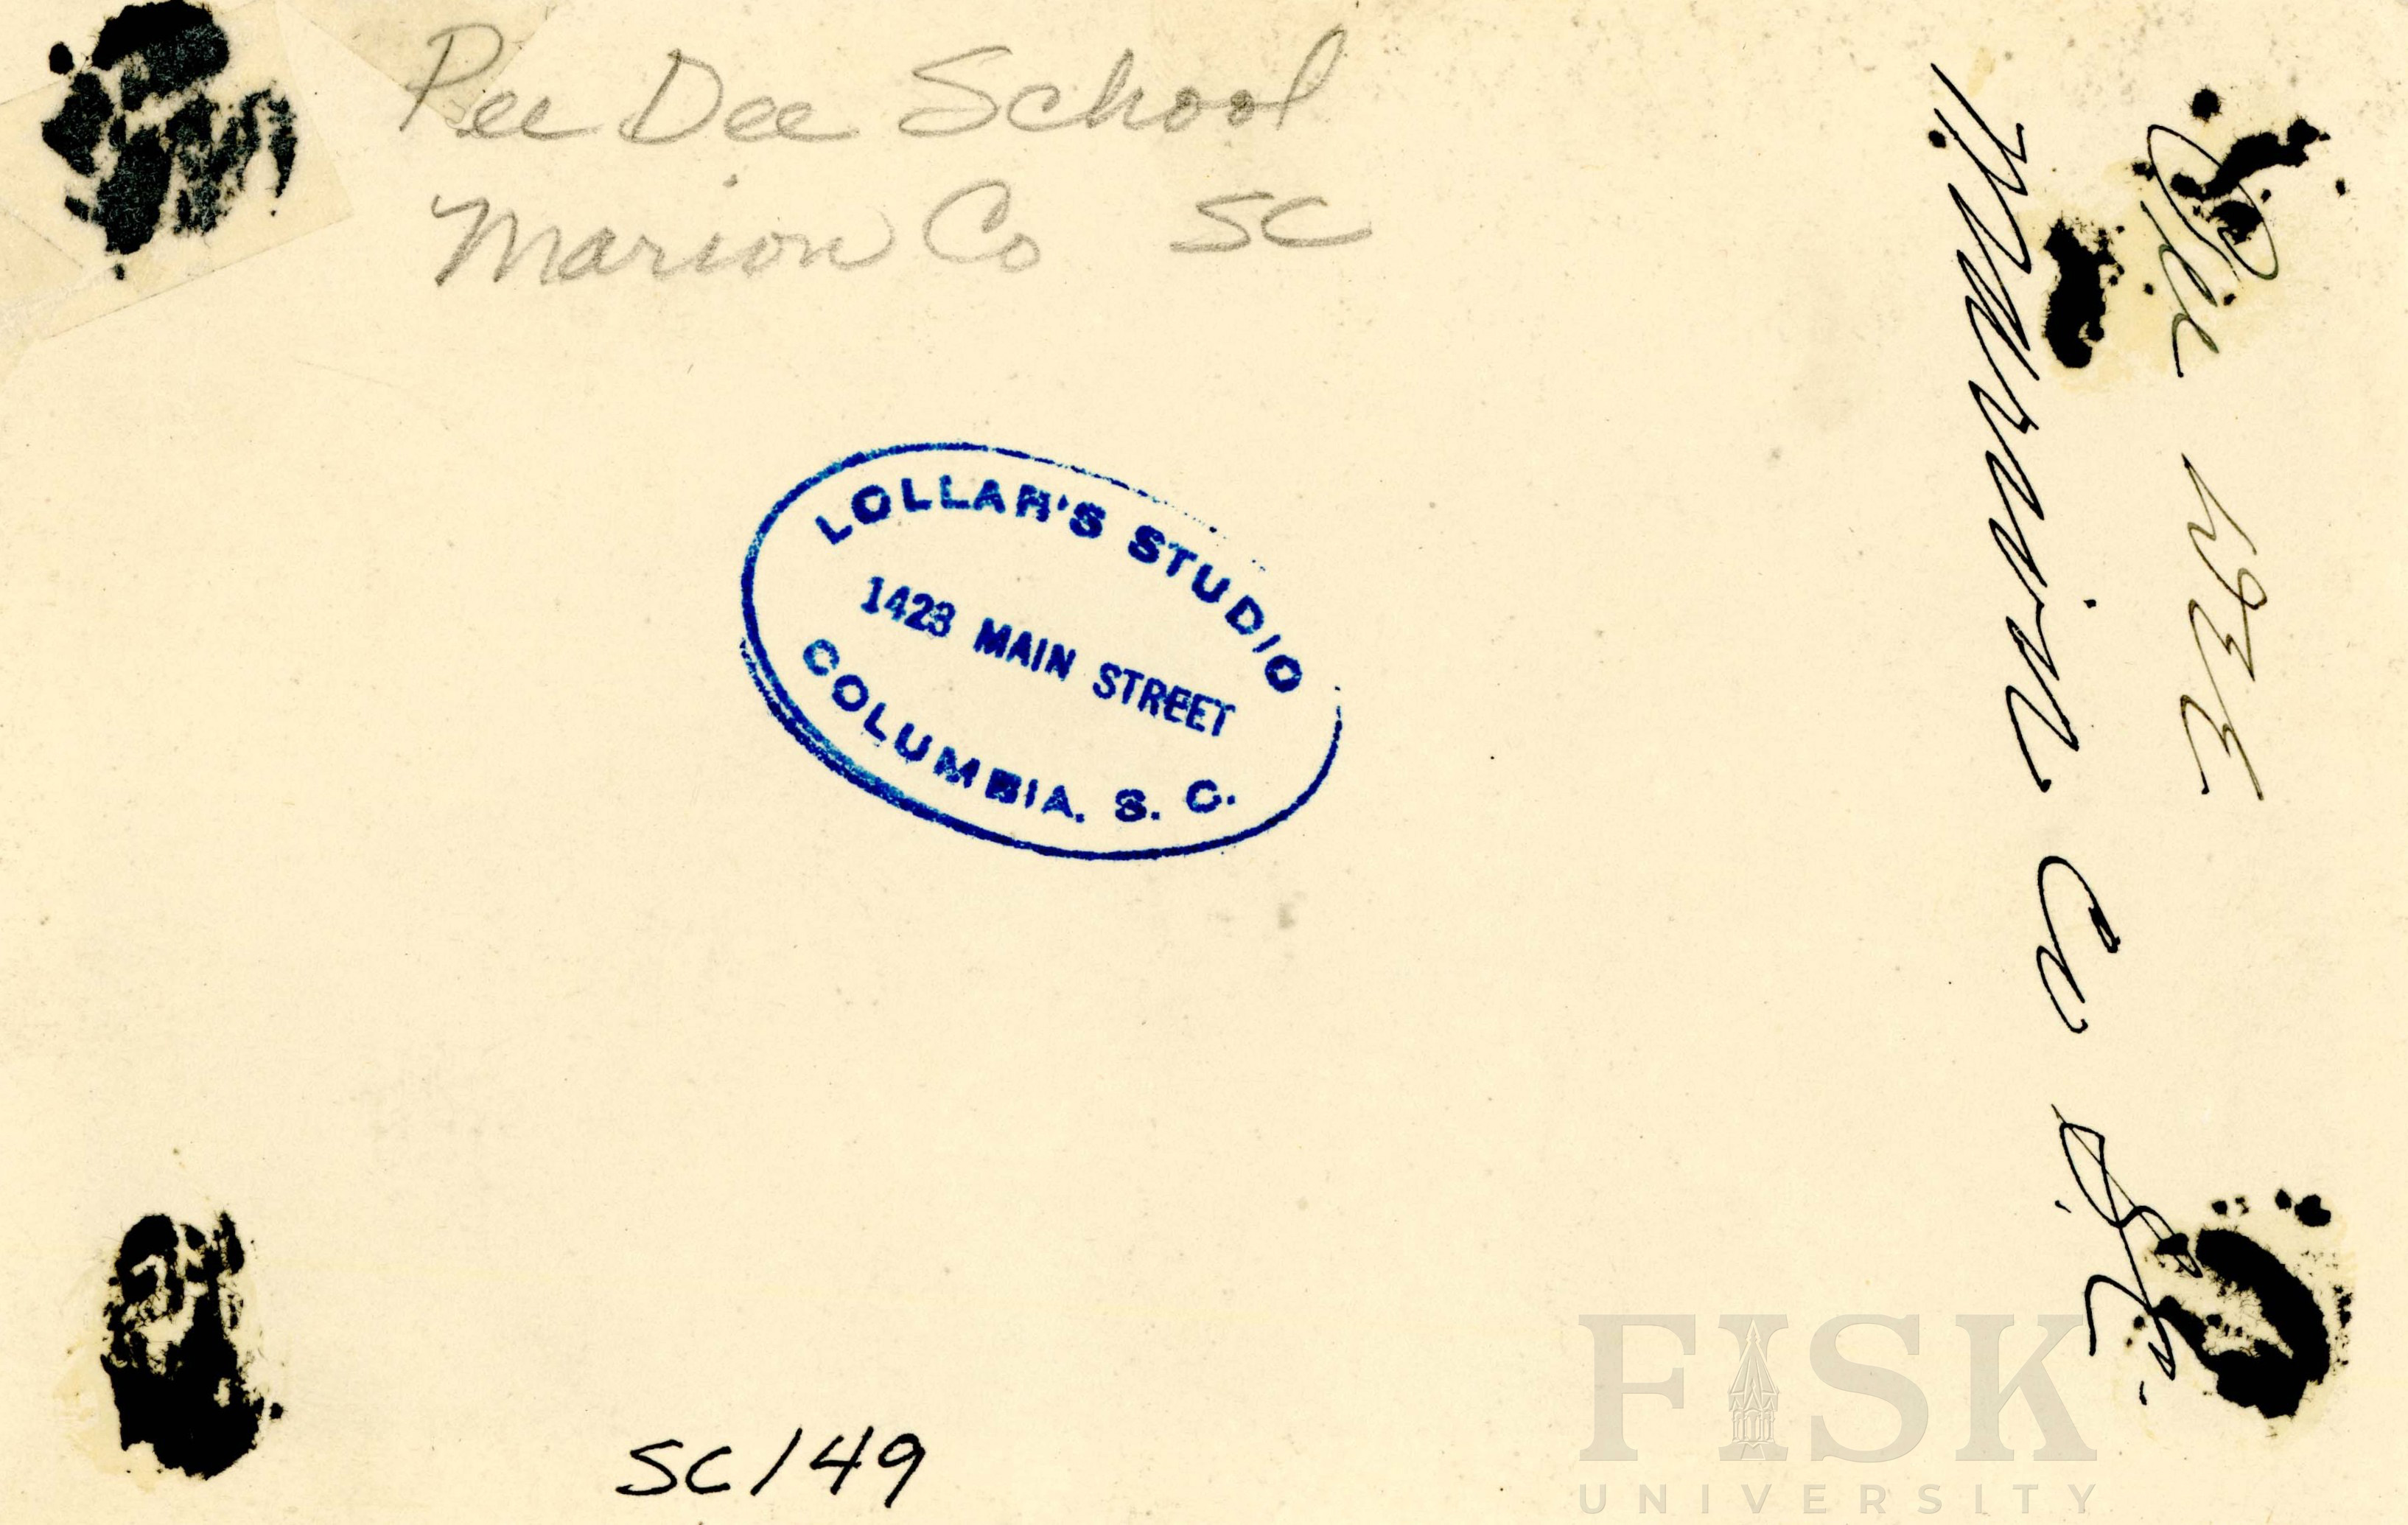 Pee Dee School
Marion Co SC
LOLLAR'S STUDIO
1423 MAIN STREET
COLUMBIA. S. C.
Pee Dee
Marion Co S.C.
SC149
FISK
UNIVERSITY